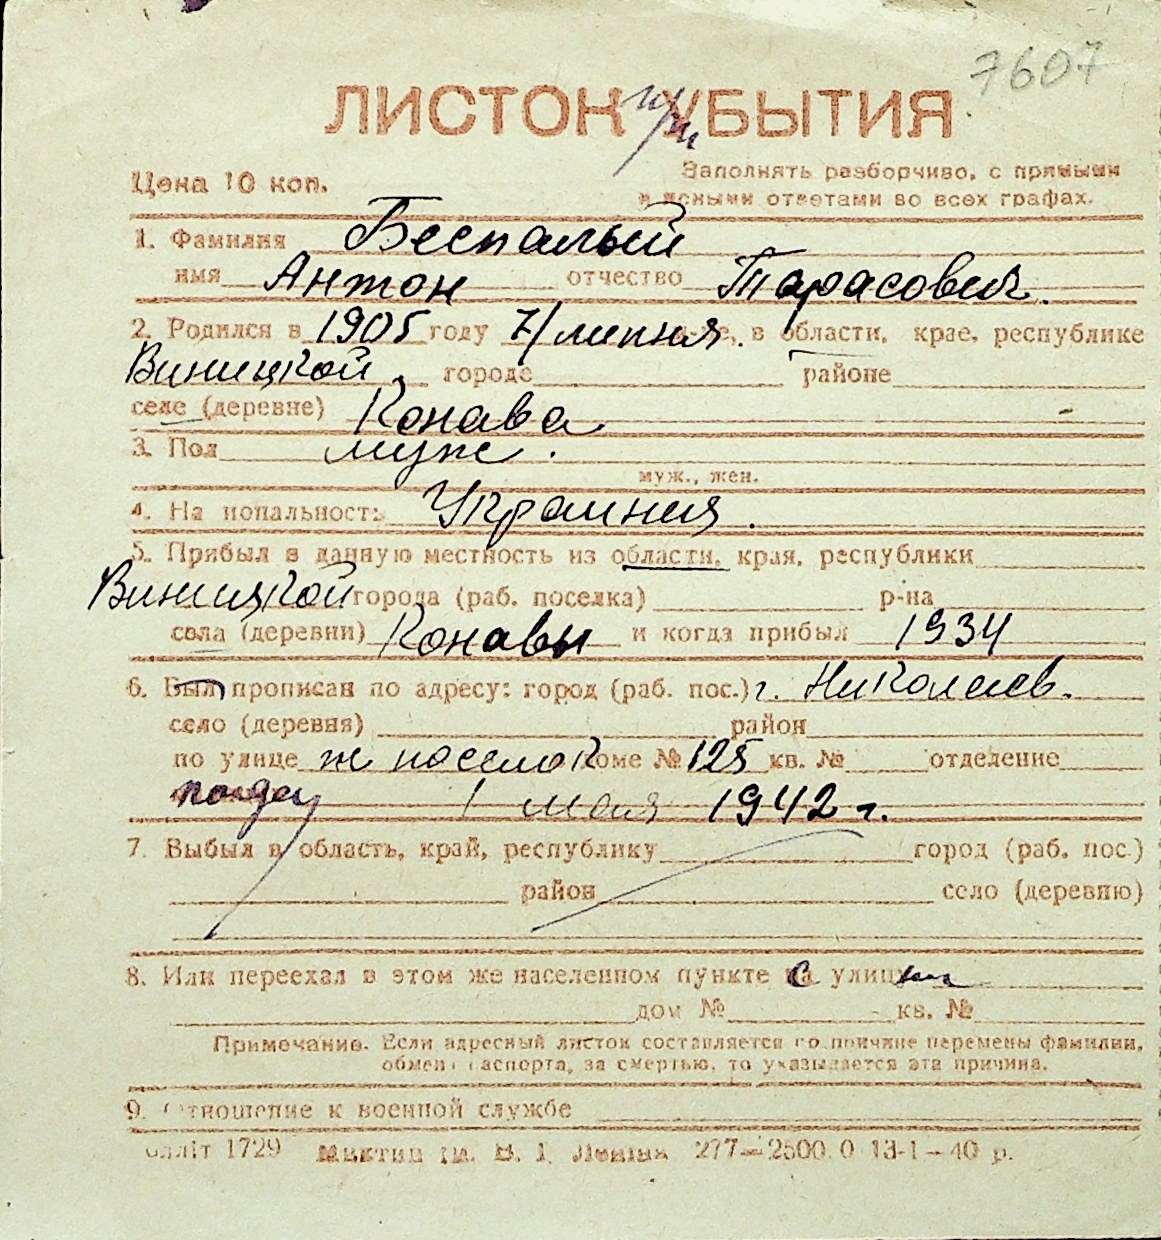 7607
ЛИСТОК при УБЫТИЯ
Цена 10 коп.
Заполнять разборчиво, с прямыми
и ясными ответами во всех графах.
1. Фамилия Беспалый
имя Антон отчество Тарасович.
2. Родился в 1905 году 7/липня. в области, крае, республике
Виницкой, городе районе
селе (деревне) Конава
3. Пол муж.
муж., жен.
4. Национальность Украиния.
5. Прибыл в данную местность из области, края, республики
Виницкой города (раб. поселка) р-на
села (деревни) Конавы и когда прибыл 1934
6. Был прописан по адресу: город (раб. пос.) г. Николаев.
село (деревня) район
по улице ж поселок доме № 125 кв. № отделение
1 мая 1942 г.
7. Выбыл в область, край, республику город (раб. пос.)
район село (деревню)
8. Или переехал в этом же населенном пункте с улицы
дом № кв. №
Примечание. Если адресный листок составляется по причине перемены фамилии,
обмена паспорта, за смертью, то указывается эта причина.
9. Отношение к военной службе
олліт 1729 Миктип ім. В. І. Леніна 277—2500.0 13-1-40 р.